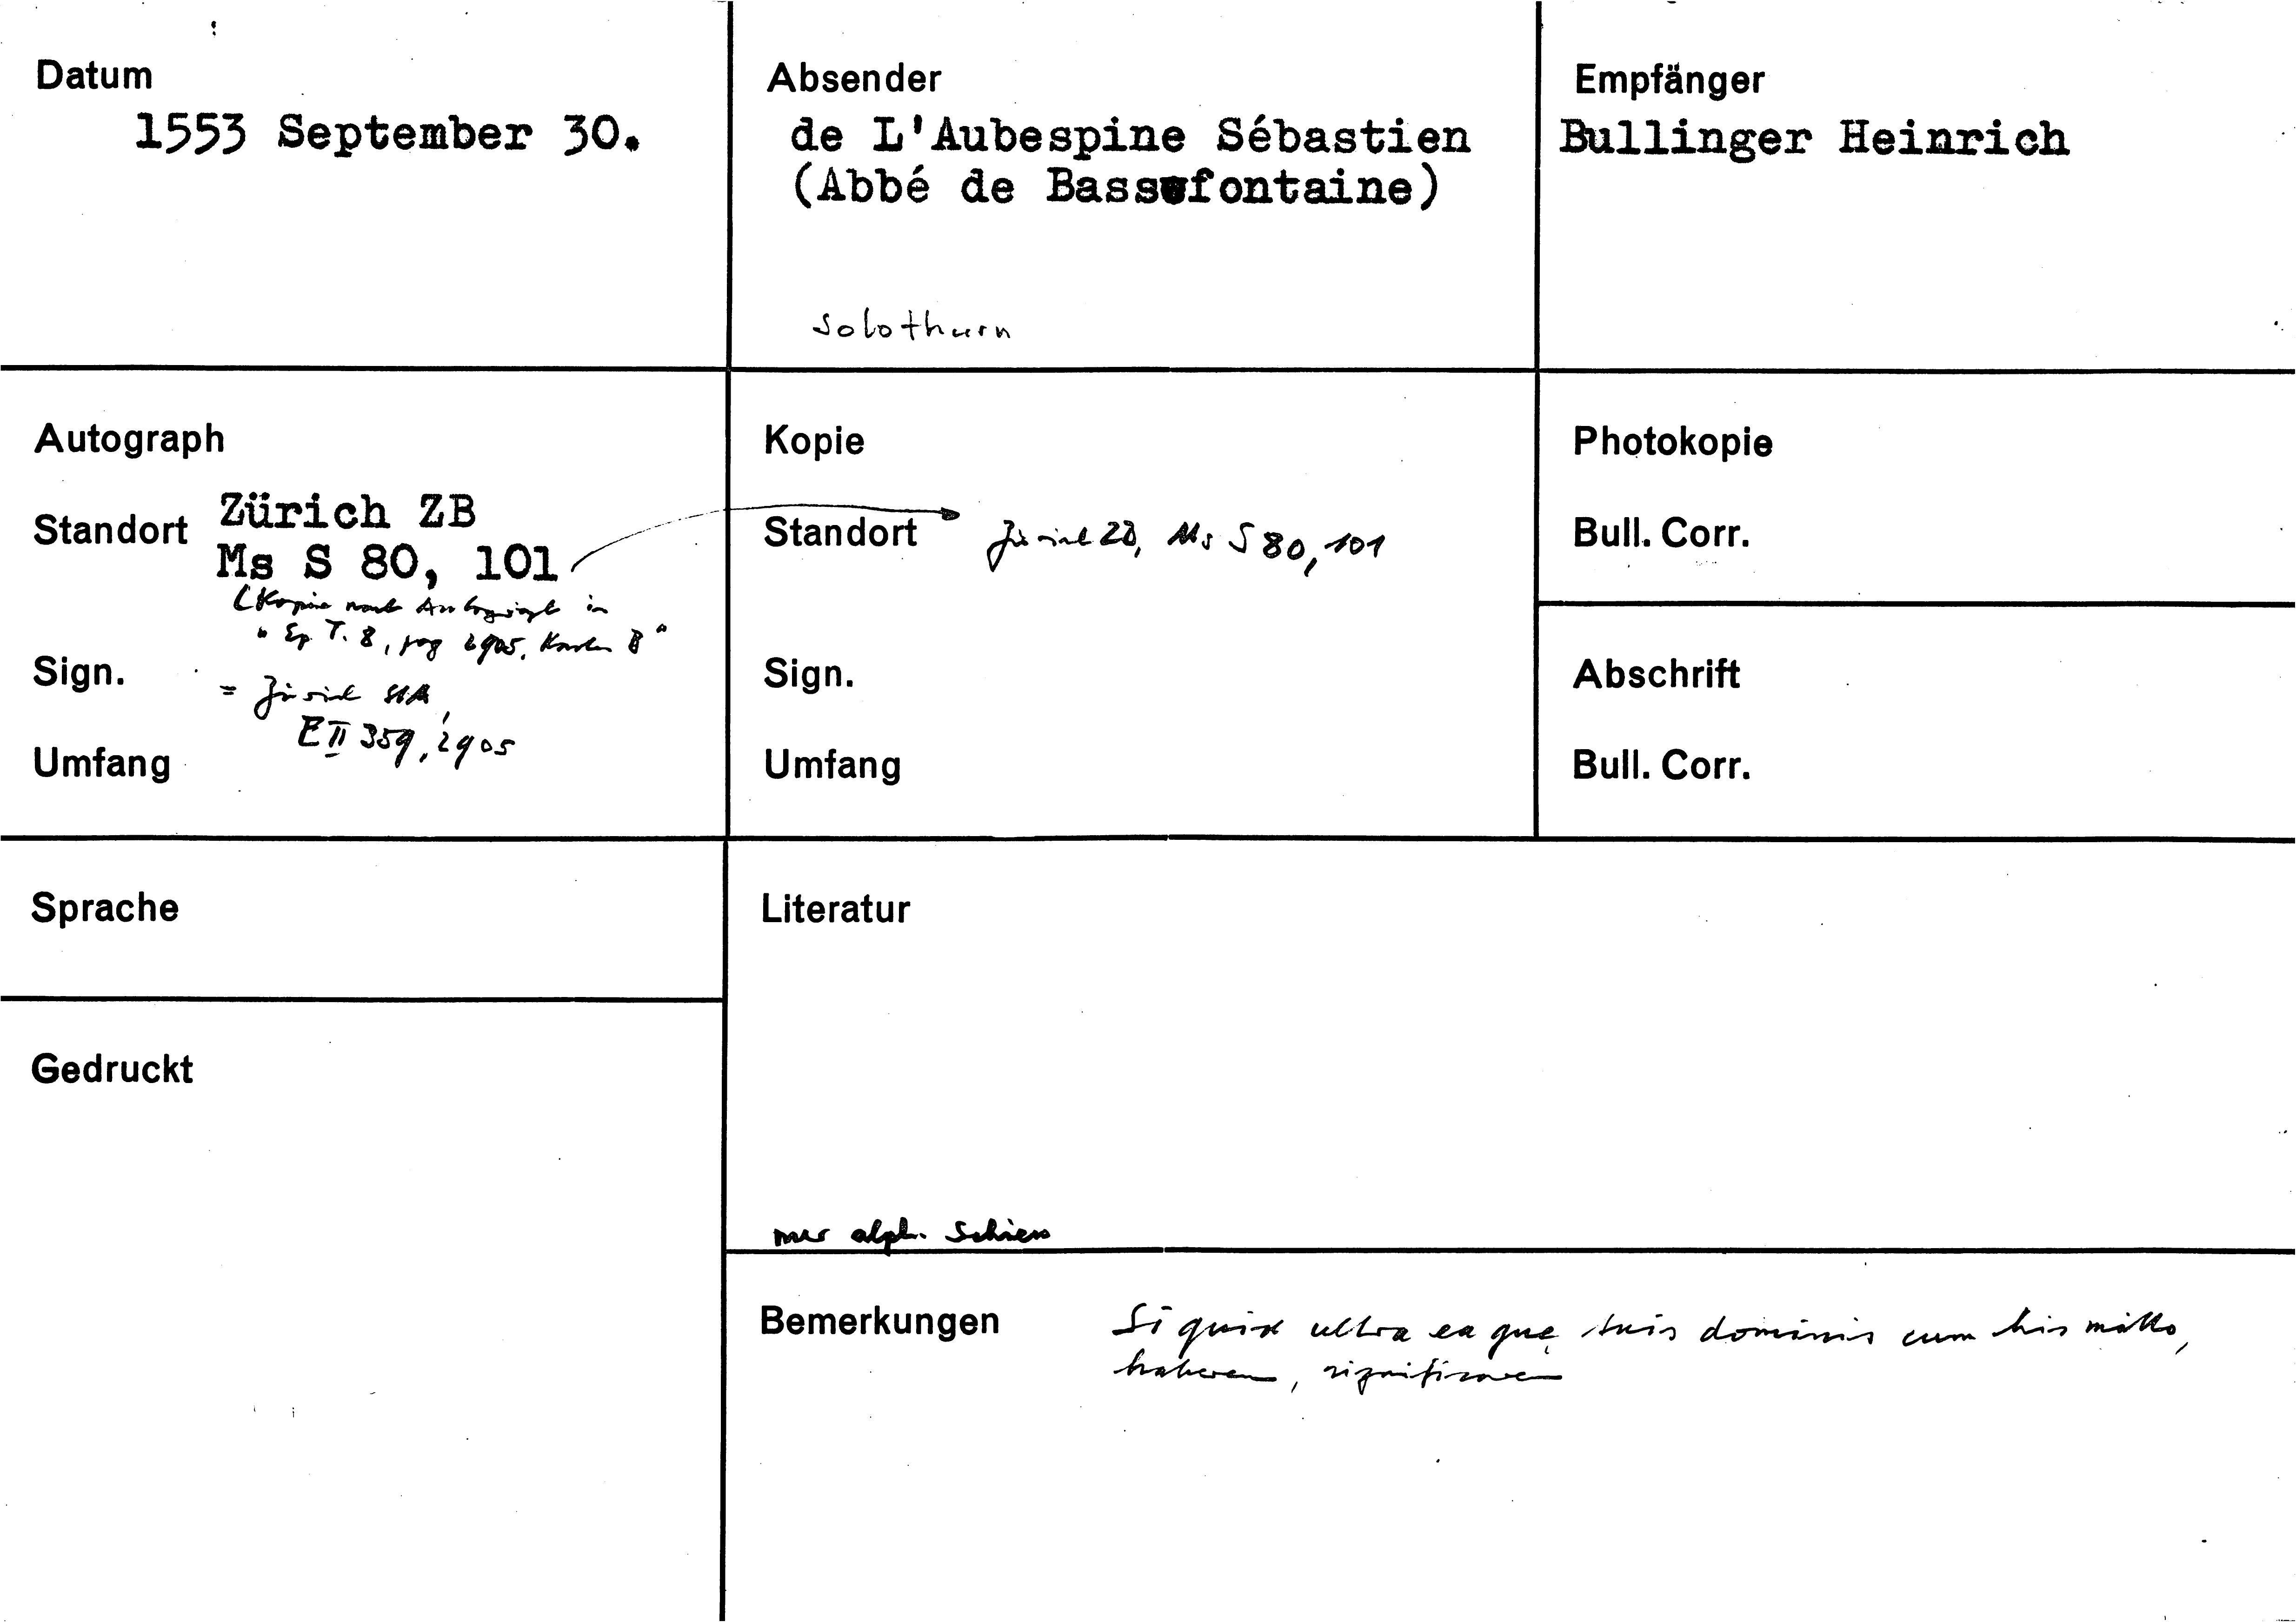 Datum
1553 September 30.
Absender
de L'Aubespine Sébastien
(Abbé de Bassefontaine)
Solothurn
Empfänger
Bullinger Heinrich
Autograph
Standort Zürich ZB
Ms S 80, 101
(Kopie nach Autograph in
"Ep. T. 8, pag 2905, Kasten B"
Sign.
= Zürich StA,
E II 359, 2905
Umfang
Kopie
Standort Zürich ZB, Ms S 80, 101
Sign.
Umfang
Photokopie
Bull. Corr.
Abschrift
Bull. Corr.
Sprache
Gedruckt
Literatur
nur alph. Schiess
Bemerkungen Si quid ultra ea quę tuis dominis cum his mitto,
haberem, significarem